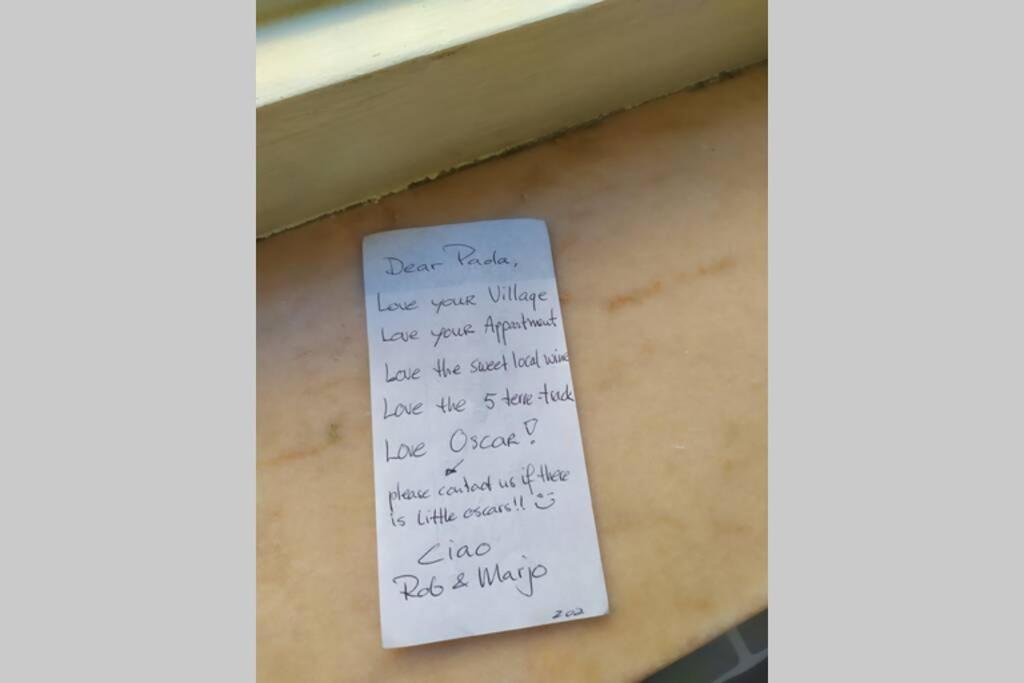 Dear Paola,
Love your Village
Love your Appartment
Love the sweet local wine
Love the 5 terre-track
Love Oscar!
please contact us if there
is little oscars!! :)
Ciao
Rob & Marjo
202